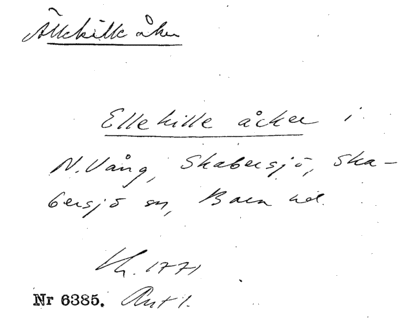 Ällekille åker
Ellekille åcker i
N. Vång, Skabersjö, Ska-
bersjö sn, Bara hd.
Lh. 1771
Nr 6385. Avt 1.